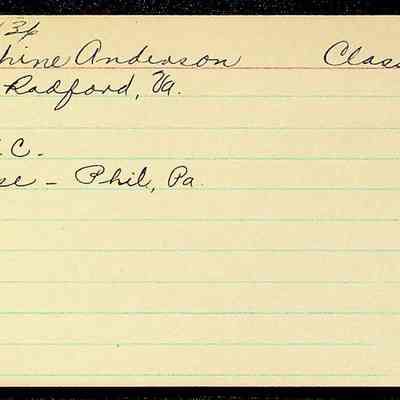 134
hine Anderson Clas
Radford, Va.
C.
se - Phil, Pa.